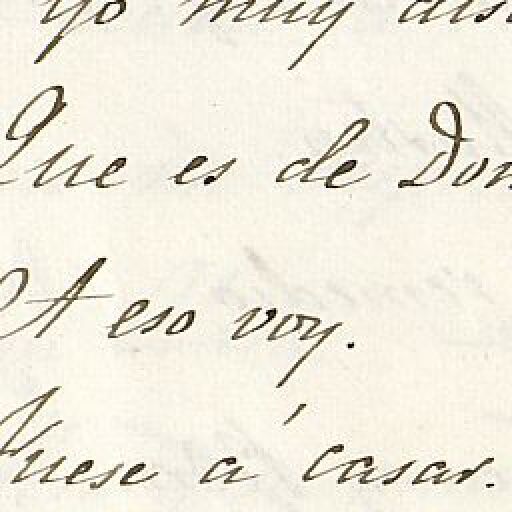 yo muy
Que es de Don
A eso voy.
Fuese á casar.